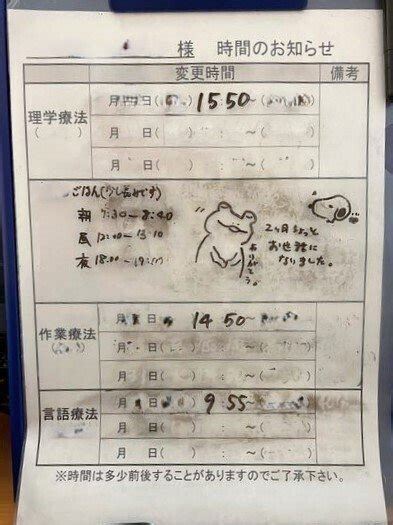 様 時間のお知らせ
変更時間 備考
理学療法
( )
月 日( ) 15:50 ~(
月 日( ) : ~( )
月 日( ) : ~( )
ごはん(少し長めです)
朝 7:30-8:40
昼 12:00-13:10
夜 18:00-19:
ありがとう。
2ヶ月ちょっと
お世話に
なりました。
作業療法
月 日 14 50
月 日( ) : ~( )
月 日( ) : ~( )
言語療法
月 日 9:55
月 日( ) : ~( )
月 日( ) : ~( )
※時間は多少前後することがありますのでご了承下さい。